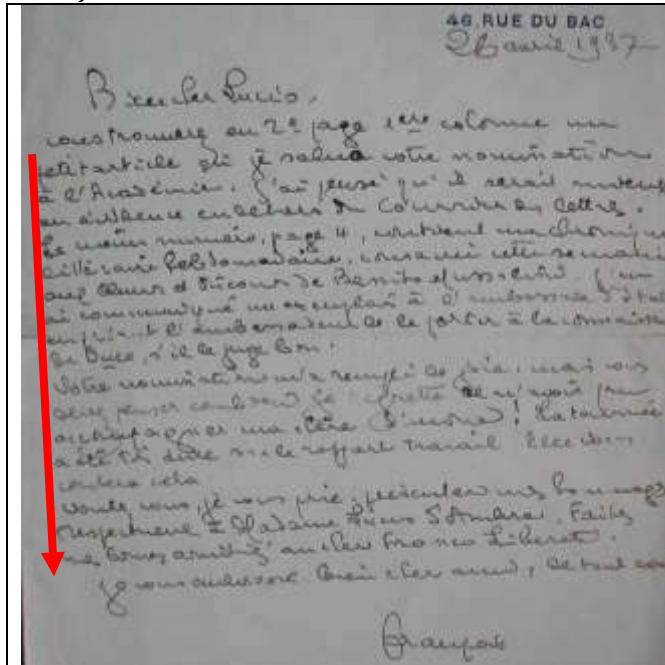 46 RUE DU BAC
26 avril 1937
Bien cher Lucio,
vous trouverez en 2e page 1ère colonne un
petit article où je salue votre nomination
à l'Académie. J'ai pensé qu'il serait mieux
en évidence en dehors du Courrier des lettres.
Le même numéro, page 4, contient ma chronique
littéraire hebdomadaire, consacrée cette semaine
aux Œuvres et Discours de Benito Mussolini. J'en
ai communiqué un exemplaire à l'ambassade d'
en l'ambassadeur de le porter à la connaissance
du Duce, s'il le juge bon.
Votre nomination m'a rempli de joie, mais vous
devez penser combien je regrette de n'avoir pu
accompagner ma chère ! La tournée
a été très dure sous le rapport travail
cela
Voulez-vous, je vous prie, présenter mes hommages
respectueux à Madame Lucio d'Ambra. Faites
mes bonnes amitiés au cher Franco Liberati.
Je vous embrasse bien cher ami, de tout
François